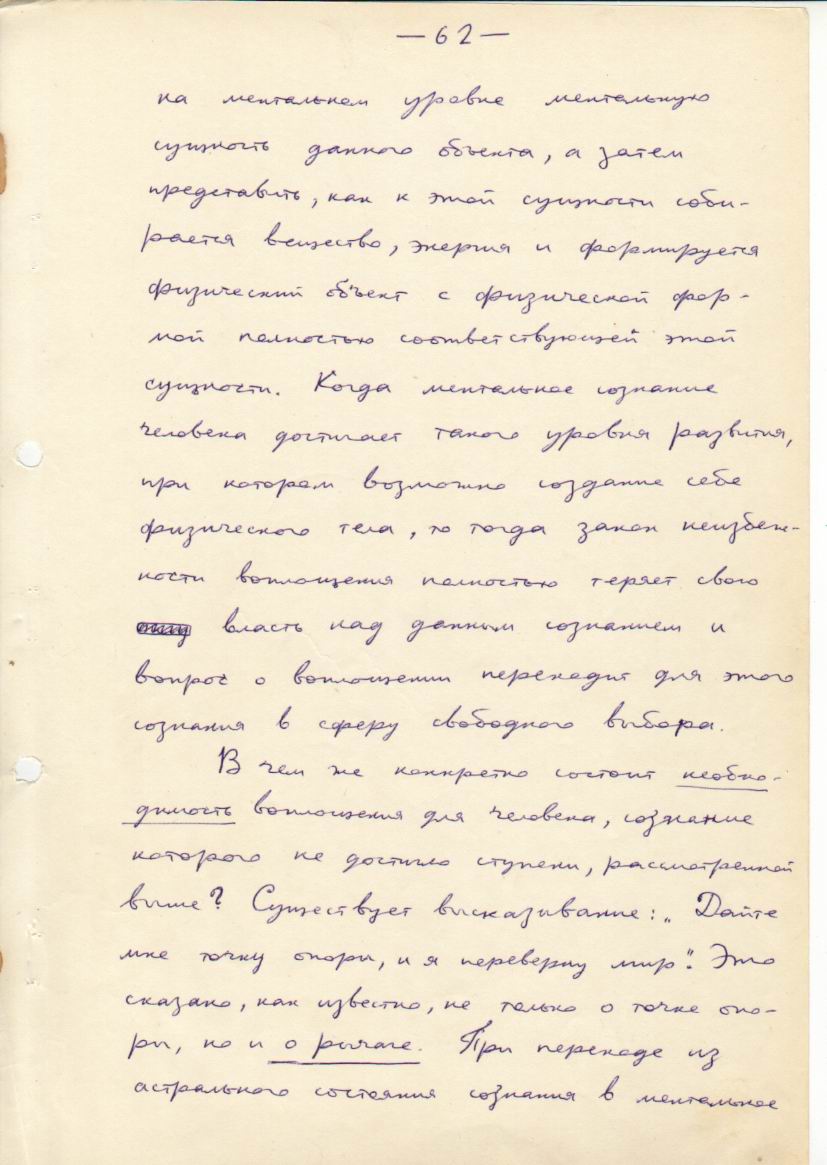 — 62 —
на ментальном уровне ментальную
сущность данного объекта, а затем
представить, как к этой сущности соби-
рается вещество, энергия и формируется
физический объект с физической фор-
мой полностью соответствующей этой
сущности. Когда ментальное сознание
человека достигает такого уровня развития,
при котором возможно создание себе
физического тела, то тогда закон неизбеж-
ности воплощения полностью теряет свою
власть над данным сознанием и
вопрос о воплощении переходит для этого
сознания в сферу свободного выбора.
В чем же конкретно состоит необхо-
димость воплощения для человека, сознание
которого не достигло ступени, рассмотренной
выше? Существует высказывание: „Дайте
мне точку опоры, и я переверну мир". Это
сказано, как известно, не только о точке опо-
ры, но и о рычаге. При переходе из
астрального состояния сознания в ментальное